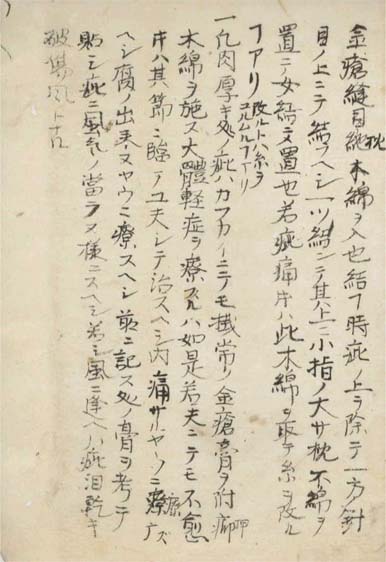 金瘡縫目枕木綿ヲ入也結フ時疵ノ上ヲ除テ一方針
目ノ上ニテ結フヘシ一ツ結ンテ其上ニ小指ノ大サ枕木綿ヲ
置ニノ女結ニ〆置也若疵痛片ハ此木綿ヲ取テ糸ヲ改ル
フアリ 改ルトハ糸ヲユルムルフナリ
一凡肉厚キ処ノ疵ハカスカイニテモ掛常ノ金瘡膏ヲ附
木綿ヲ施ス大體軽症ヲ療スルハ如是若夫ニテモ不愈
片ハ其節ニ臨テ工夫シテ治スヘシ内痛サルヤウニ療
ヘシ腐ノ出来ヌヤウニ療スヘシ前ニ記ス処ノ膏ヲ考テ
貼シ疵ニ風気ノ當ラヌ様ニスヘシ若シ風ニ逢ヘハ疵泪乾キ
破傷風ト